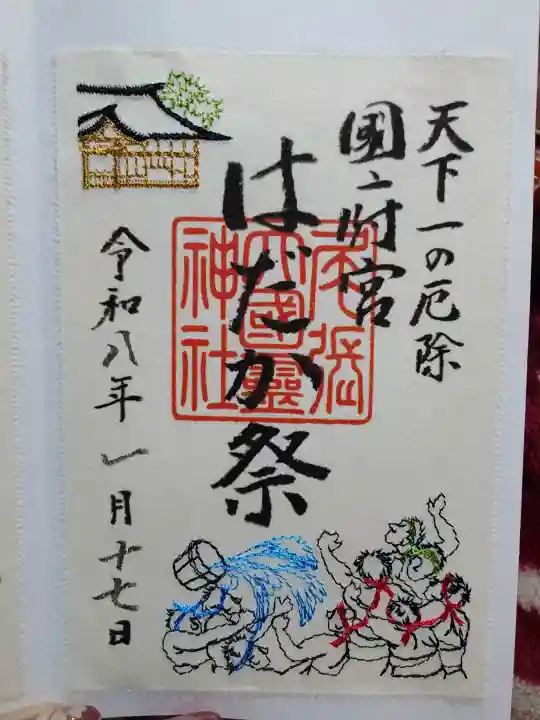 天下一の厄除
國府宮
はだか祭
尾張
大國靈
神社
令和八年一月十七日